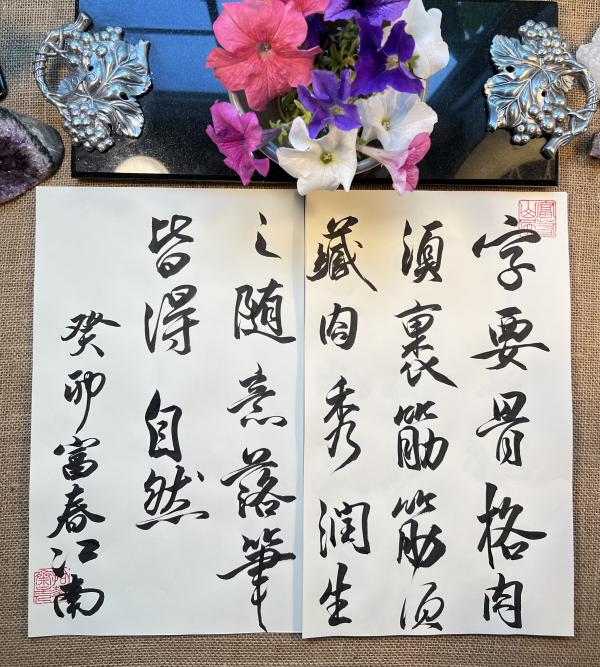 字要骨格肉
須裹筋筋須
藏肉秀潤生
之随意落筆
皆得自然
癸卯富春江南